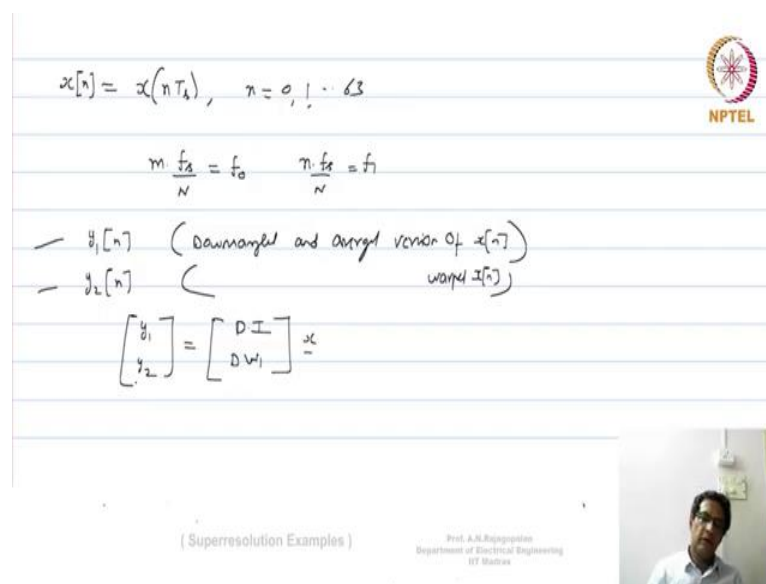 x[n] = x(nTs), n = 0, 1 .. 63
NPTEL
m. fs/N = f0 n. fs/N = f1
— y1[n] (Downsampled and averaged version of x[n])
— y2[n] ( warped x[n])
[y1 y2] = [D.I DW1] x
( Superresolution Examples )
Prof. A.N.Rajagopalan
Department of Electrical Engineering
IIT Madras